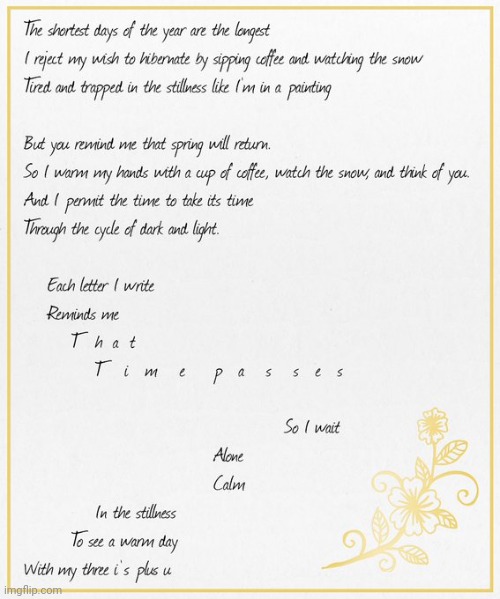 The shortest days of the year are the longest
I reject my wish to hibernate by sipping coffee and watching the snow
Tired and trapped in the stillness like I'm in a painting
But you remind me that spring will return.
So I warm my hands with a cup of coffee, watch the snow, and think of you.
And I permit the time to take its time
Through the cycle of dark and light.
Each letter I write
Reminds me
T h a t
T i m e p a s s e s
So I wait
Alone
Calm
In the stillness
To see a warm day
With my three i's plus u
imgflip.com